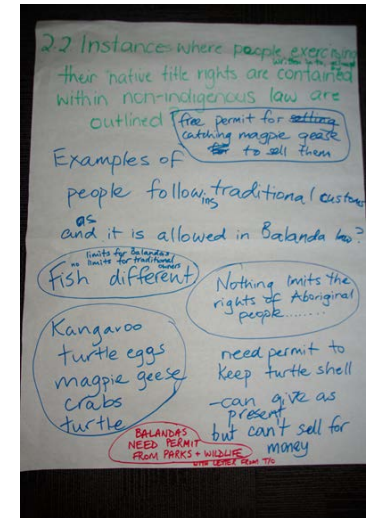 2.2 Instances where people exercising
their native title rights are contained
within non-indigenous law are
outlined
free permit for setting
catching magpie geese
to sell them
Examples of
people following traditional customs
as
and it is allowed in Balanda law?
limits for Balandas
no limits for traditional
owners
Fish different
Nothing lmits the
rights of Aboriginal
people........
Kangaroo
turtle eggs
magpie geese
crabs
turtle
need permit to
keep turtle shell
-can give as
present
but can't sell for
money
BALANDAS
NEED PERMIT
FROM PARKS + WILDLIFE
WITH LETTER FROM T/O